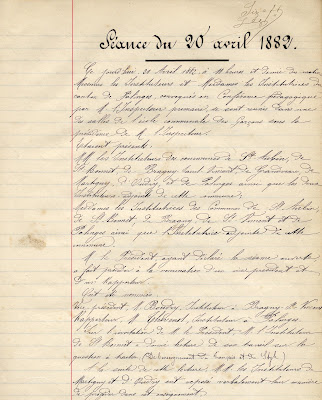 Séance du 20 avril 1882.
Ce jourd'hui 20 Avril 1882, à heures et demie du matin
Messieurs les Instituteurs et Mesdames les Institutrices du
canton de Palinges convoqués en Conférence Pédagogique
par M. l'Inspecteur primaire, se sont réunis dans une
des salles de l'école communale des garçons sous la
présidence de M. l'Inspecteur.
Etaient présents:
MM. les Instituteurs des communes de St Aubin, de
St Bonnet de Bragny St Vincent de Grandvaux de
Martigny d'Oudry et de Palinges ainsi que les deux
Instituteurs adjoints de cette commune.
Mesdames les Institutrices des Communes de St Aubin,
de St Bonnet de Bragny de St Vincent et de
Palinges ainsi que l'Institutrice adjointe de cette
commune.
M. le Président ayant déclaré la séance ouverte
a fait procéder à la nomination d'un vice-président et
d'un rapporteur.
Ont été nommés
Vice président, M. Instituteur à Bragny St Vincent
Rapporteur, M. Instituteur à Palinges
Sur l'invitation de M. le Président M. l'Instituteur
de St Bonnet a donné lecture de son travail sur la
question à traiter
A la suite de cette lecture, MM. les Instituteurs de
Martigny et d'Oudry ont exposé verbalement leur manière
de procéder dans cet enseignement.